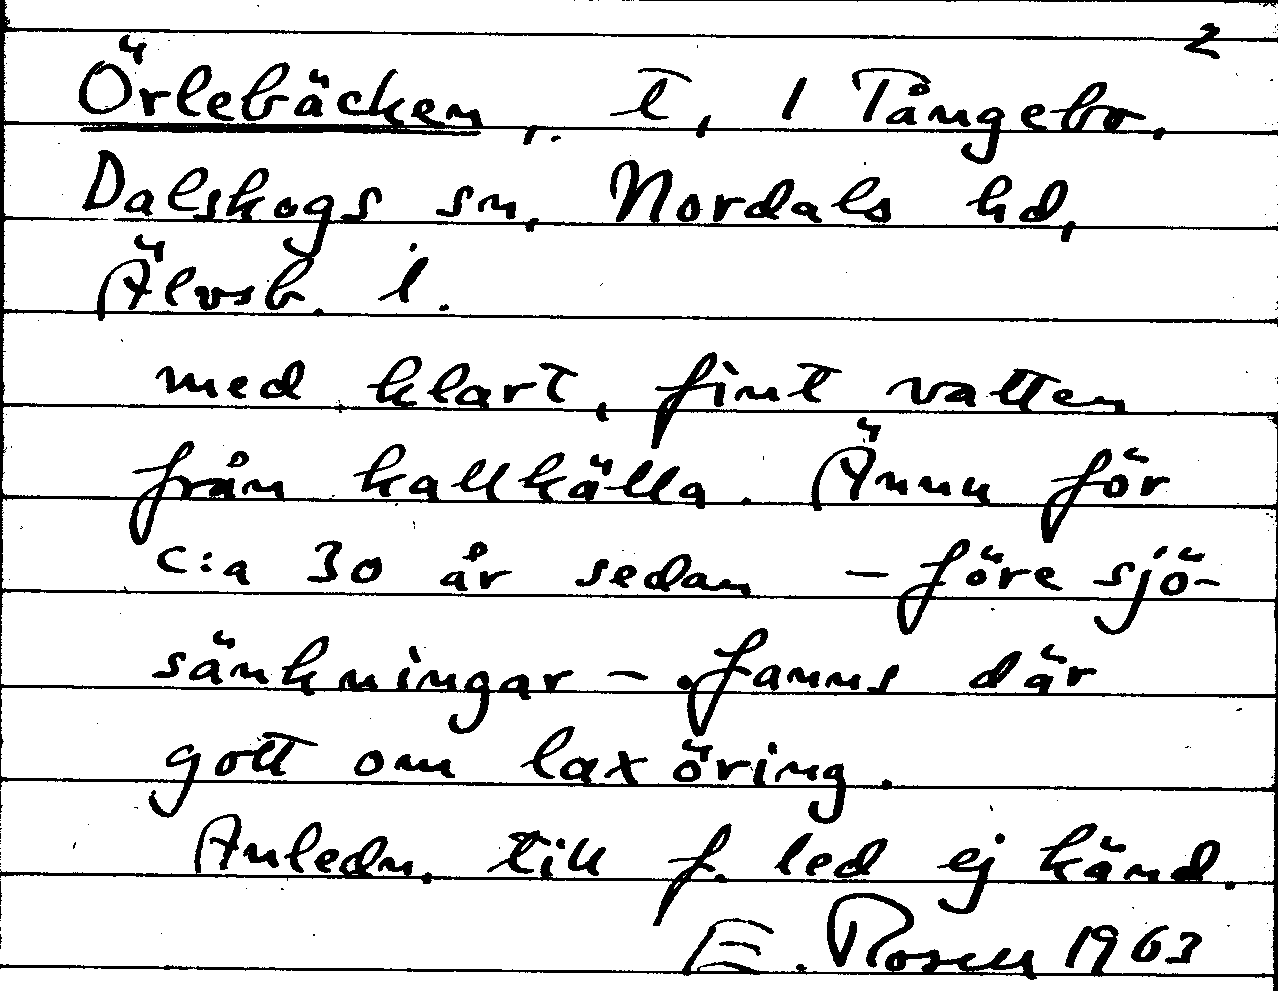 2
Örlebäcken, t, 1 Tångebo,
Dalskogs sn, Nordals hd,
Älvsb. l.
med klart, fint vatten
från kallkälla. Ännu för
c:a 30 år sedan – före sjö-
sänkningar – fanns där
gott om laxöring.
Anledn. till f. led ej känd.
E. Rosell 1963